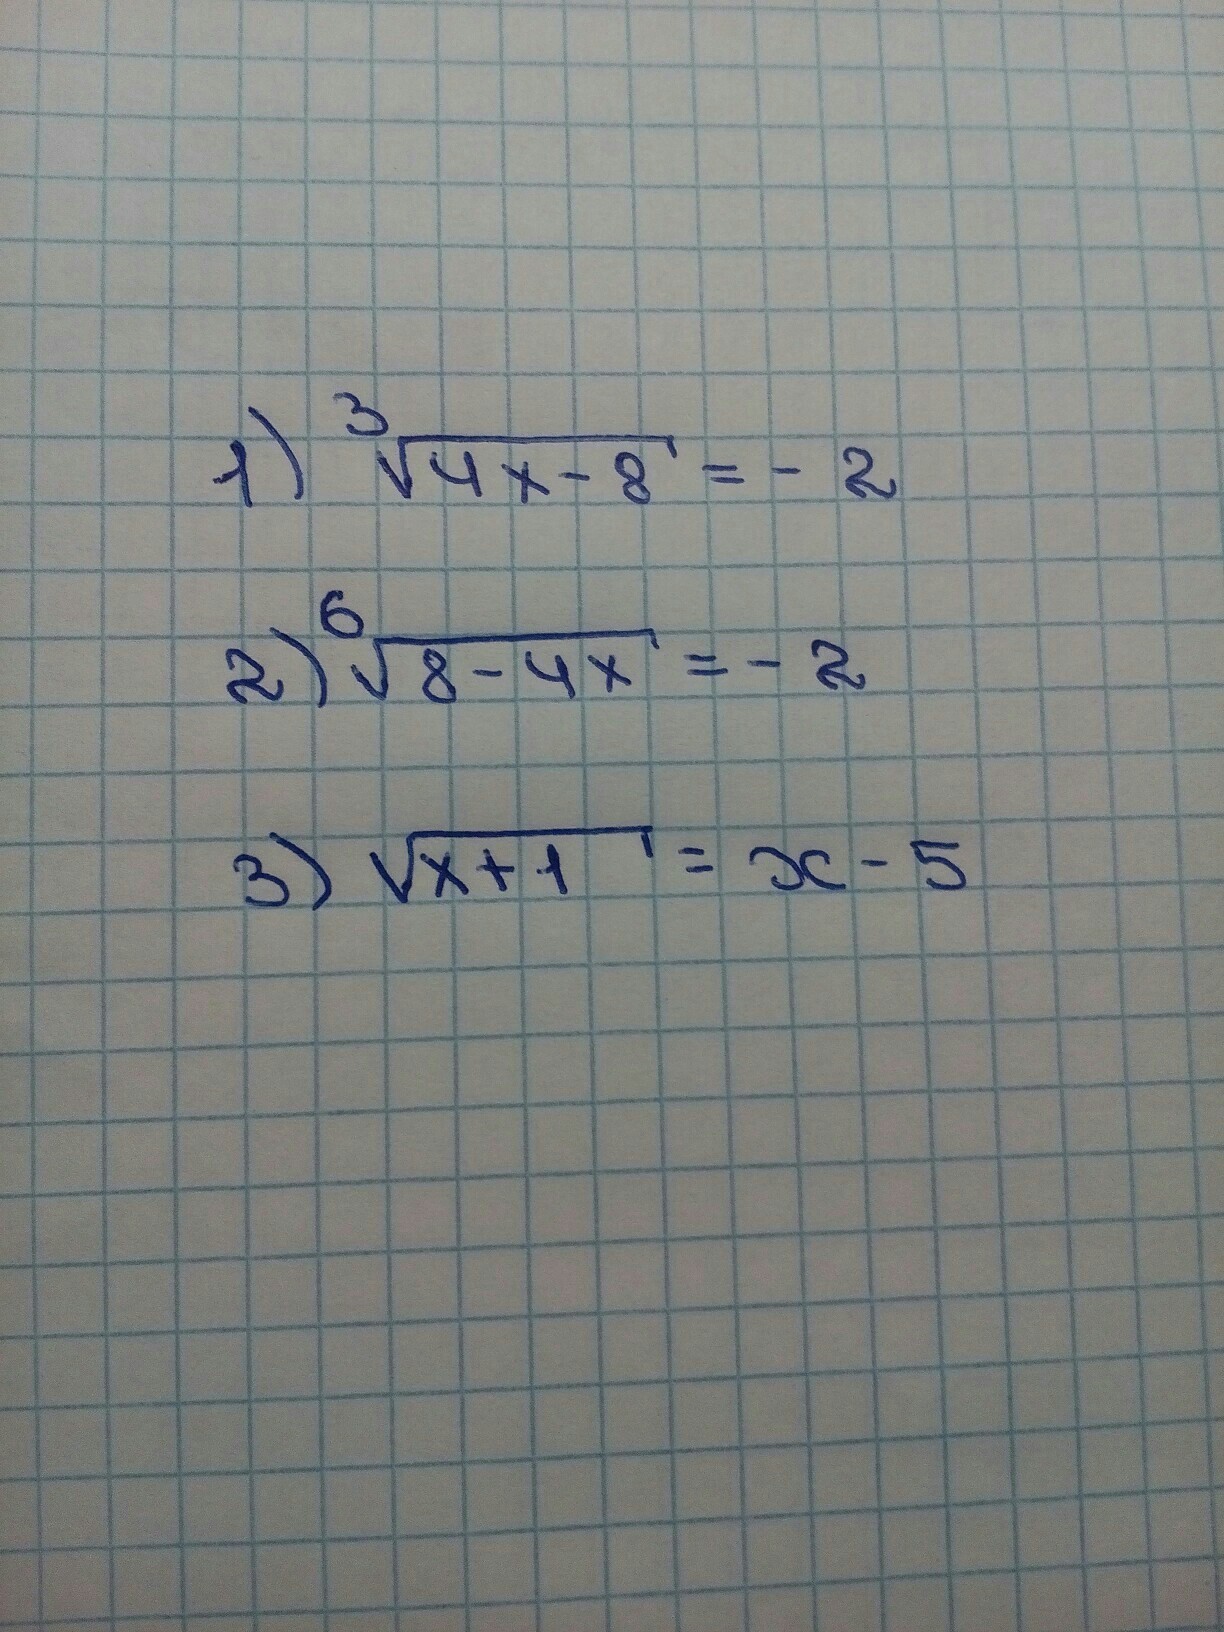 1) ∛(4x-8) = -2
2) ⁶√(8-4x) = -2
3) √(x+1) = x-5